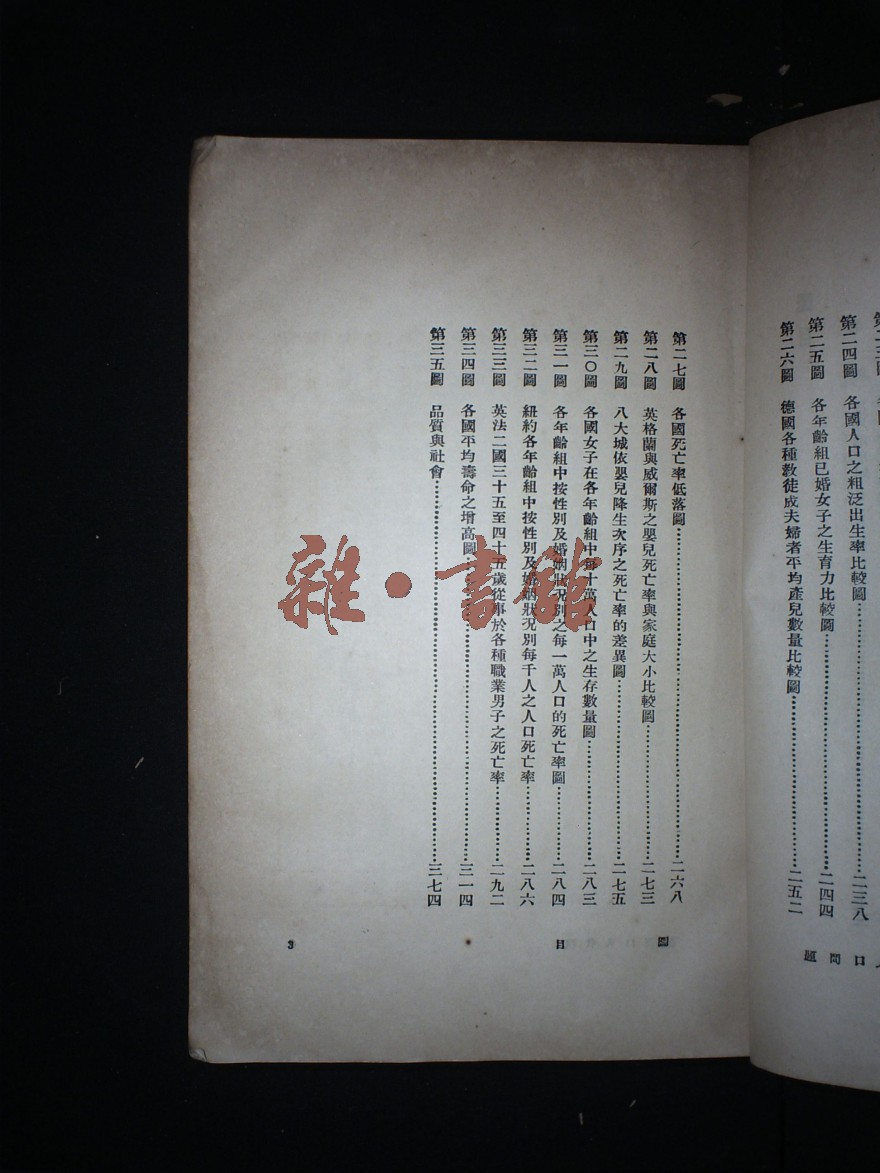 第二四圖 各國人口之粗泛出生率比較圖……二三八
第二五圖 各年齡組已婚女子之生育力比較圖……二四四
第二六圖 德國各種教徒成夫婦者平均產兒數量比較圖……二五二
口問題
第二七圖 各國死亡率低落圖……二六八
第二八圖 英格蘭與威爾斯之嬰兒死亡率與家庭大小比較圖……二七三
第二九圖 八大城依嬰兒降生次序之死亡率的差異圖……二七五
第三〇圖 各國女子在各年齡組中每十萬人口中之生存數量圖……二八三
第三一圖 各年齡組中按性別及婚姻狀況別之每一萬人口的死亡率圖……二八四
第三二圖 紐約各年齡組中按性別及婚姻狀況別每千人之人口死亡率……二八六
第三三圖 英法二國三十五至四十五歲從事於各種職業男子之死亡率……二九二
第三四圖 各國平均壽命之增高圖……三一四
第三五圖 品質與社會……三七四
圖目 3
雜·書館